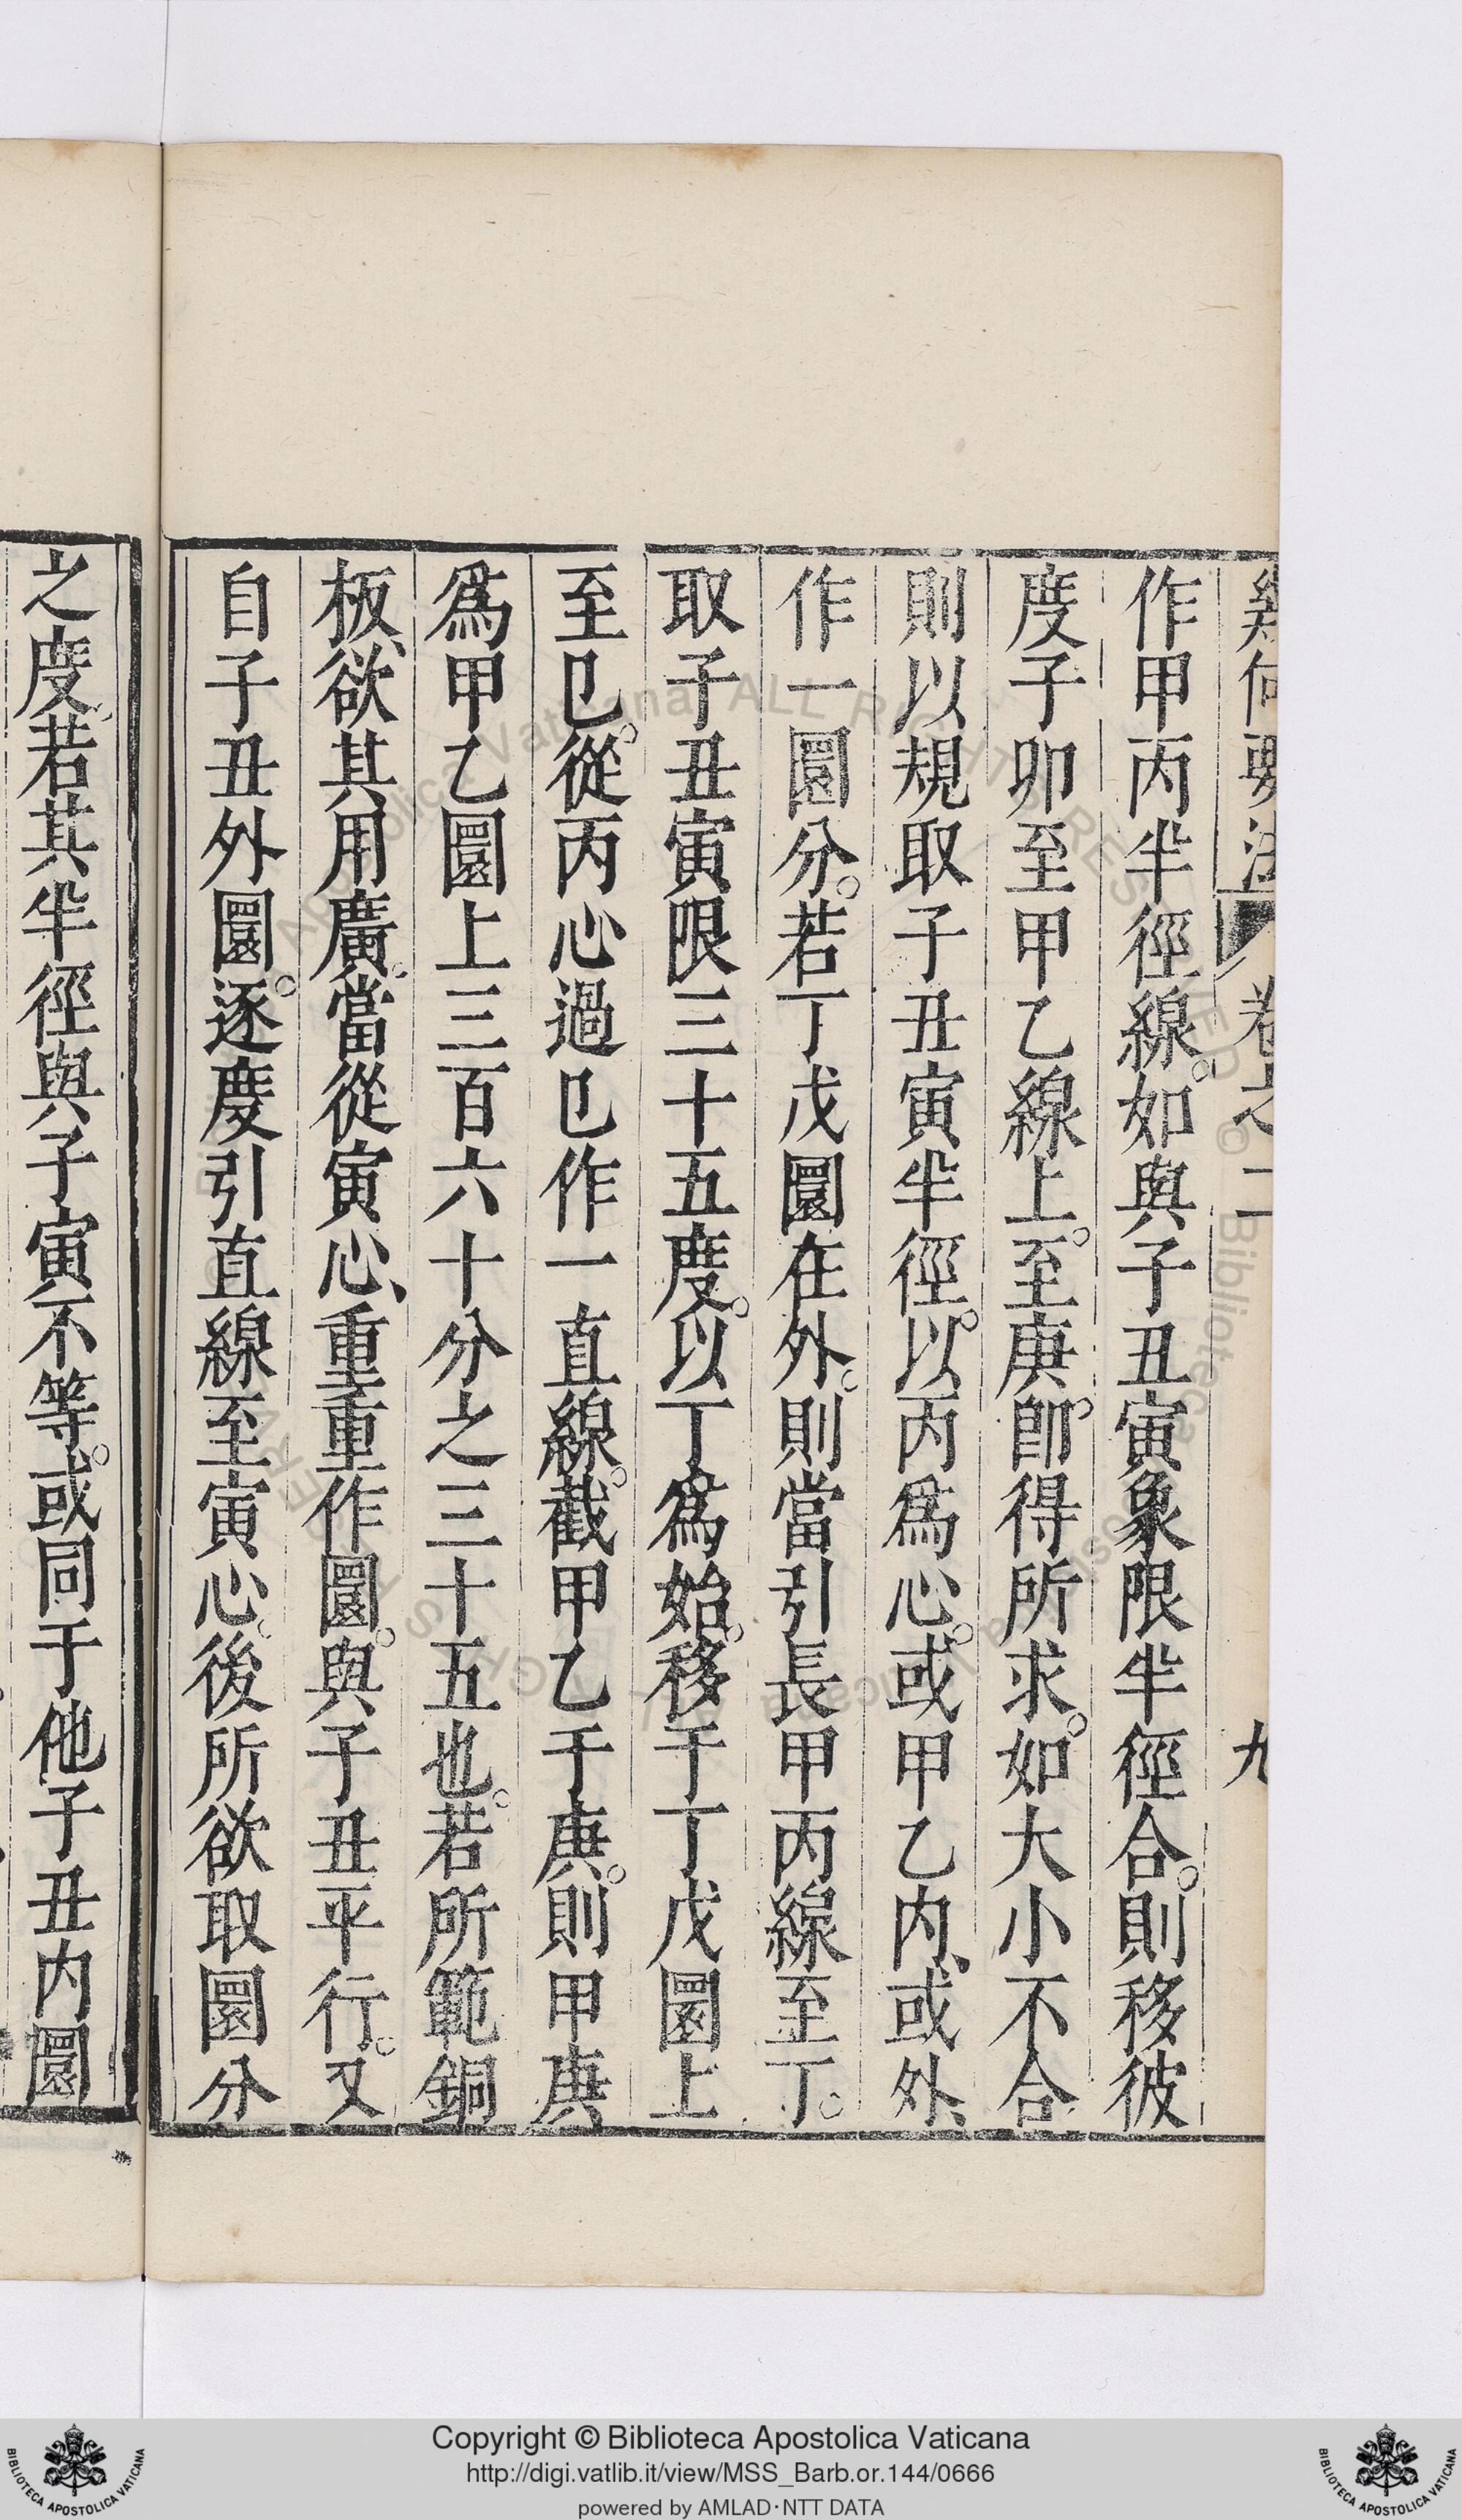 幾何要法 卷之二 九
作甲丙半徑線。如與子丑寅象限半徑合。則移彼
度子卯至甲乙線上。至庚。卽得所求。如大小不合
則以規取子丑寅半徑。以丙爲心。或甲乙内、或外、
作一圜分。若丁戊圜在外。則當引長甲丙線至丁。
取子丑寅限三十五度。以丁爲始。移于丁戊圜上
至巳。從丙心過巳作一直線。截甲乙于庚。則甲庚
爲甲乙圜上三百六十分之三十五也。若所範銅
板、欲其用廣。當從寅心、重重作圜。與子丑平行。又
自子丑外圜。逐度引直線至寅心。後所欲取圜分
之度。若其半徑與子寅不等。或同于他子丑内圜
Copyright © Biblioteca Apostolica Vaticana
http://digi.vatlib.it/view/MSS_Barb.or.144/0666
powered by AMLAD·NTT DATA
BIBLIOTECA APOSTOLICA VATICANA
BIBLIOTECA APOSTOLICA VATICANA